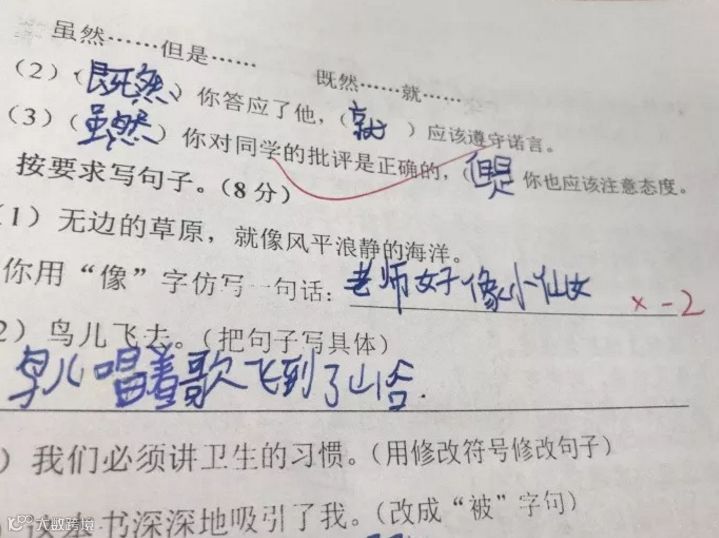 虽然……但是……
既然……就……
(2)(既然)你答应了他,(就)应该遵守诺言。
(3)(虽然)你对同学的批评是正确的,(但是 你也应该注意态度。
按要求写句子。(8分)
1)无边的草原,就像风平浪静的海洋。
你用“像”字仿写一句话:老师好像小仙女 ×-2
2)鸟儿飞去。(把句子写具体)
鸟儿唱着歌飞到了山谷.
)我们必须讲卫生的习惯。(用修改符号修改句子)
这本书深深地吸引了我。(改成“被”字句)
大数跨境